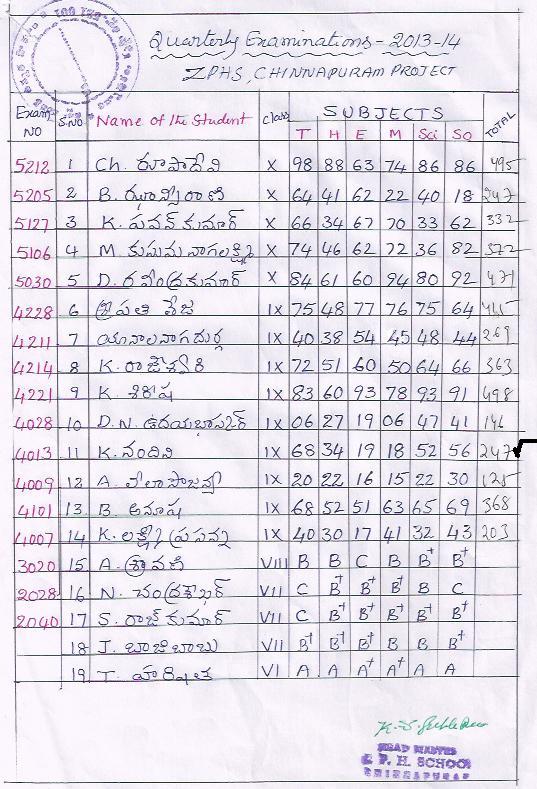 Quarterly Examinations - 2013-14
ZPHS, CHINNAPURAM PROJECT
Exam NO S.NO Name of the Student class SUBJECTS TOTAL
T H E M Sci So
5212 1 Ch. రూపాదేవి X 98 88 63 74 86 86 495
5205 2 B. ఝాన్సీరాణి X 64 41 62 22 40 18 247
5127 3 K. పవన్ కుమార్ X 66 34 67 70 33 62 332
5106 4 M. కుసుమ నాగలక్ష్మి X 74 46 62 72 36 82 372
5030 5 D. రవీంద్రకుమార్ X 84 61 60 94 80 92 471
4228 6 శ్రీపతి తేజ IX 75 48 77 76 75 64 415
4211 7 యానాలనాగదుర్గ IX 40 38 54 45 48 44 269
4214 8 K. రాజేశ్వరి IX 72 51 60 50 64 66 363
4221 9 K. శిరీష IX 83 60 93 78 93 91 498
4028 10 D.N. ఉదయభాస్కర్ IX 06 27 19 06 47 41 146
4013 11 K. నందిని IX 68 34 19 18 52 56 247
4009 12 A. IX 20 22 16 15 22 30 125
4101 13 B. అనూష IX 68 52 51 63 65 69 368
4007 14 K. లక్ష్మీ ప్రసన్న IX 40 30 17 41 32 43 203
3020 15 A. శ్రావణి VIII B B C B B+ B+
2028 16 N. చంద్రశేఖర్ VII C B+ B+ B+ B C
2040 17 S. రాజ్ కుమార్ VII C B+ B+ B+ B+ B+
18 J. బాజిబాబు VII B+ B+ B+ B B B+
19 T. హర్షిత VI A A A+ A+ A A
HEAD MASTER
Z. P. H. SCHOOL
CHINNAPURAM